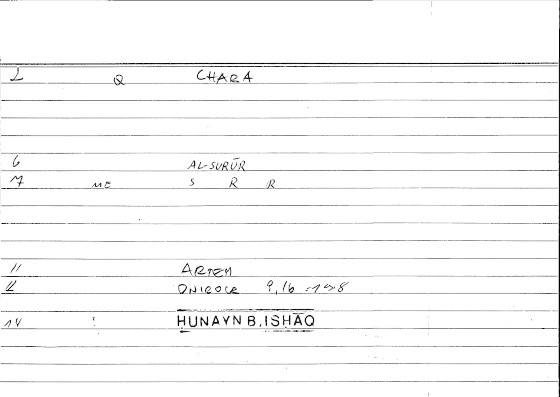 2 Q CHARA
6 AL-SURŪR
7 ME S R R
11 ARTEM
12 ONIROCR 9,16
14 HUNAYN B. ISHĀQ